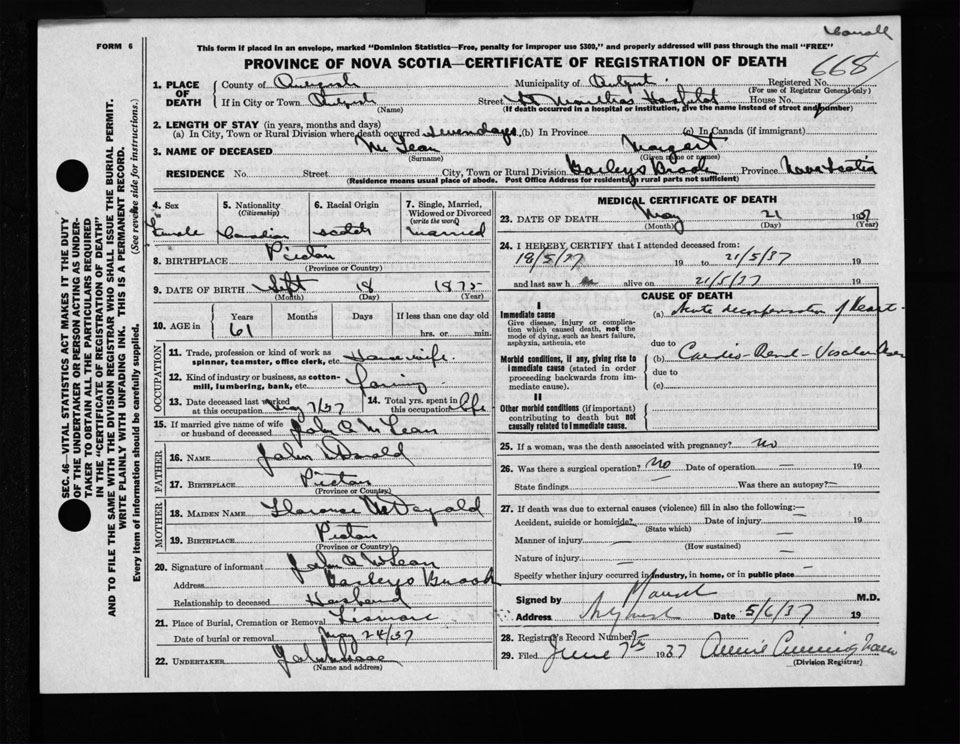 FORM 6
This form if placed in an envelope, marked "Dominion Statistics—Free, penalty for improper use $300," and properly addressed will pass through the mail "FREE"
PROVINCE OF NOVA SCOTIA—CERTIFICATE OF REGISTRATION OF DEATH
668
SEC. 46—VITAL STATISTICS ACT MAKES IT THE DUTY
OF THE UNDERTAKER OR PERSON ACTING AS UNDERTAKER
TO OBTAIN ALL THE PARTICULARS REQUIRED
IN THE "CERTIFICATE OF REGISTRATION OF DEATH"
AND TO FILE THE SAME WITH THE DIVISION REGISTRAR WHO SHALL ISSUE THE BURIAL PERMIT.
WRITE PLAINLY WITH UNFADING INK. THIS IS A PERMANENT RECORD.
Every item of information should be carefully supplied. (See reverse side for instructions.)
1. PLACE OF DEATH
County of Municipality of Registered No.
(For use of Registrar General only)
If in City or Town Street St Hospital House No.
(Name) (If death occurred in a hospital or institution, give the name instead of street and number)
2. LENGTH OF STAY (in years, months and days)
(a) In City, Town or Rural Division where death occurred seven days (b) In Province (c) In Canada (if immigrant)
3. NAME OF DECEASED McLean
(Surname) (Given name or names)
RESIDENCE No. Street City, Town or Rural Division Baileys Brook Province Nova Scotia
(Residence means usual place of abode. Post Office Address for residents of rural parts not sufficient)
4. Sex Female
5. Nationality (Citizenship) Canadian
6. Racial Origin Scotch
7. Single, Married, Widowed or Divorced (write the word) Married
8. BIRTHPLACE Pictou
(Province or Country)
9. DATE OF BIRTH Sept 18 1875
(Month) (Day) (Year)
10. AGE in Years Months Days If less than one day old
61 hrs. or min.
OCCUPATION
11. Trade, profession or kind of work as spinner, teamster, office clerk, etc. Housewife
12. Kind of industry or business, as cotton-mill, lumbering, bank, etc. farming
13. Date deceased last worked at this occupation May 7/37
14. Total yrs. spent in this occupation life
15. If married give name of wife or husband of deceased John A McLean
FATHER
16. NAME John
17. BIRTHPLACE Pictou
(Province or Country)
MOTHER
18. MAIDEN NAME
19. BIRTHPLACE Pictou
(Province or Country)
20. Signature of informant John A McLean
Address Baileys Brook
Relationship to deceased Husband
21. Place of Burial, Cremation or Removal Lismore
Date of burial or removal May 24/37
22. UNDERTAKER
(Name and address)
MEDICAL CERTIFICATE OF DEATH
23. DATE OF DEATH May 21 1937
(Month) (Day) (Year)
24. I HEREBY CERTIFY that I attended deceased from:
18/5/37 19 to 21/5/37 19
and last saw h alive on 21/5/37 19
CAUSE OF DEATH
I
Immediate cause
Give disease, injury or complication which caused death, not the mode of dying, such as heart failure, asphyxia, asthenia, etc
(a) Acute decompensation of Heart
due to
Morbid conditions, if any, giving rise to immediate cause (stated in order proceeding backwards from immediate cause).
(b) Cardio-Renal-Vascular
due to
(c)
II
Other morbid conditions (if important) contributing to death but not causally related to immediate cause.
25. If a woman, was the death associated with pregnancy? no
26. Was there a surgical operation? no Date of operation — 19
State findings Was there an autopsy? —
27. If death was due to external causes (violence) fill in also the following:—
Accident, suicide or homicide? Date of injury 19
(State which)
Manner of injury
(How sustained)
Nature of injury
Specify whether injury occurred in industry, in home, or in public place
Signed by M.D.
Address Date 5/6/37 19
28. Registrar's Record Number
29. Filed June 7th 1937 Annie Cunningham
(Division Registrar)